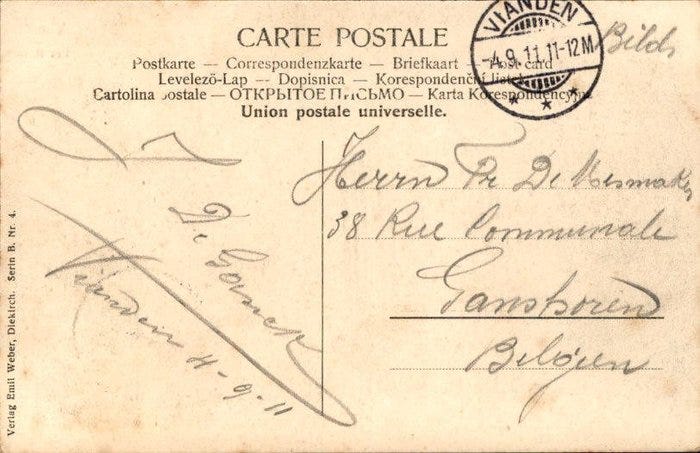 CARTE POSTALE
Postkarte — Correspondenzkarte — Briefkaart — Post card
Levelező-Lap — Dopisnica — Korespondenční lístek
Cartolina postale — ОТКРЫТОЕ ПИСЬМО — Karta Korespondencyjna
Union postale universelle.
VIANDEN
-4.9.11.11-12M
Bilds
Herrn Fr De Mesmaker
38 Rue Communale
Ganshoren
Belgien
Vianden 4-9-11
Verlag Emil Weber, Diekirch. Serie B. Nr. 4.